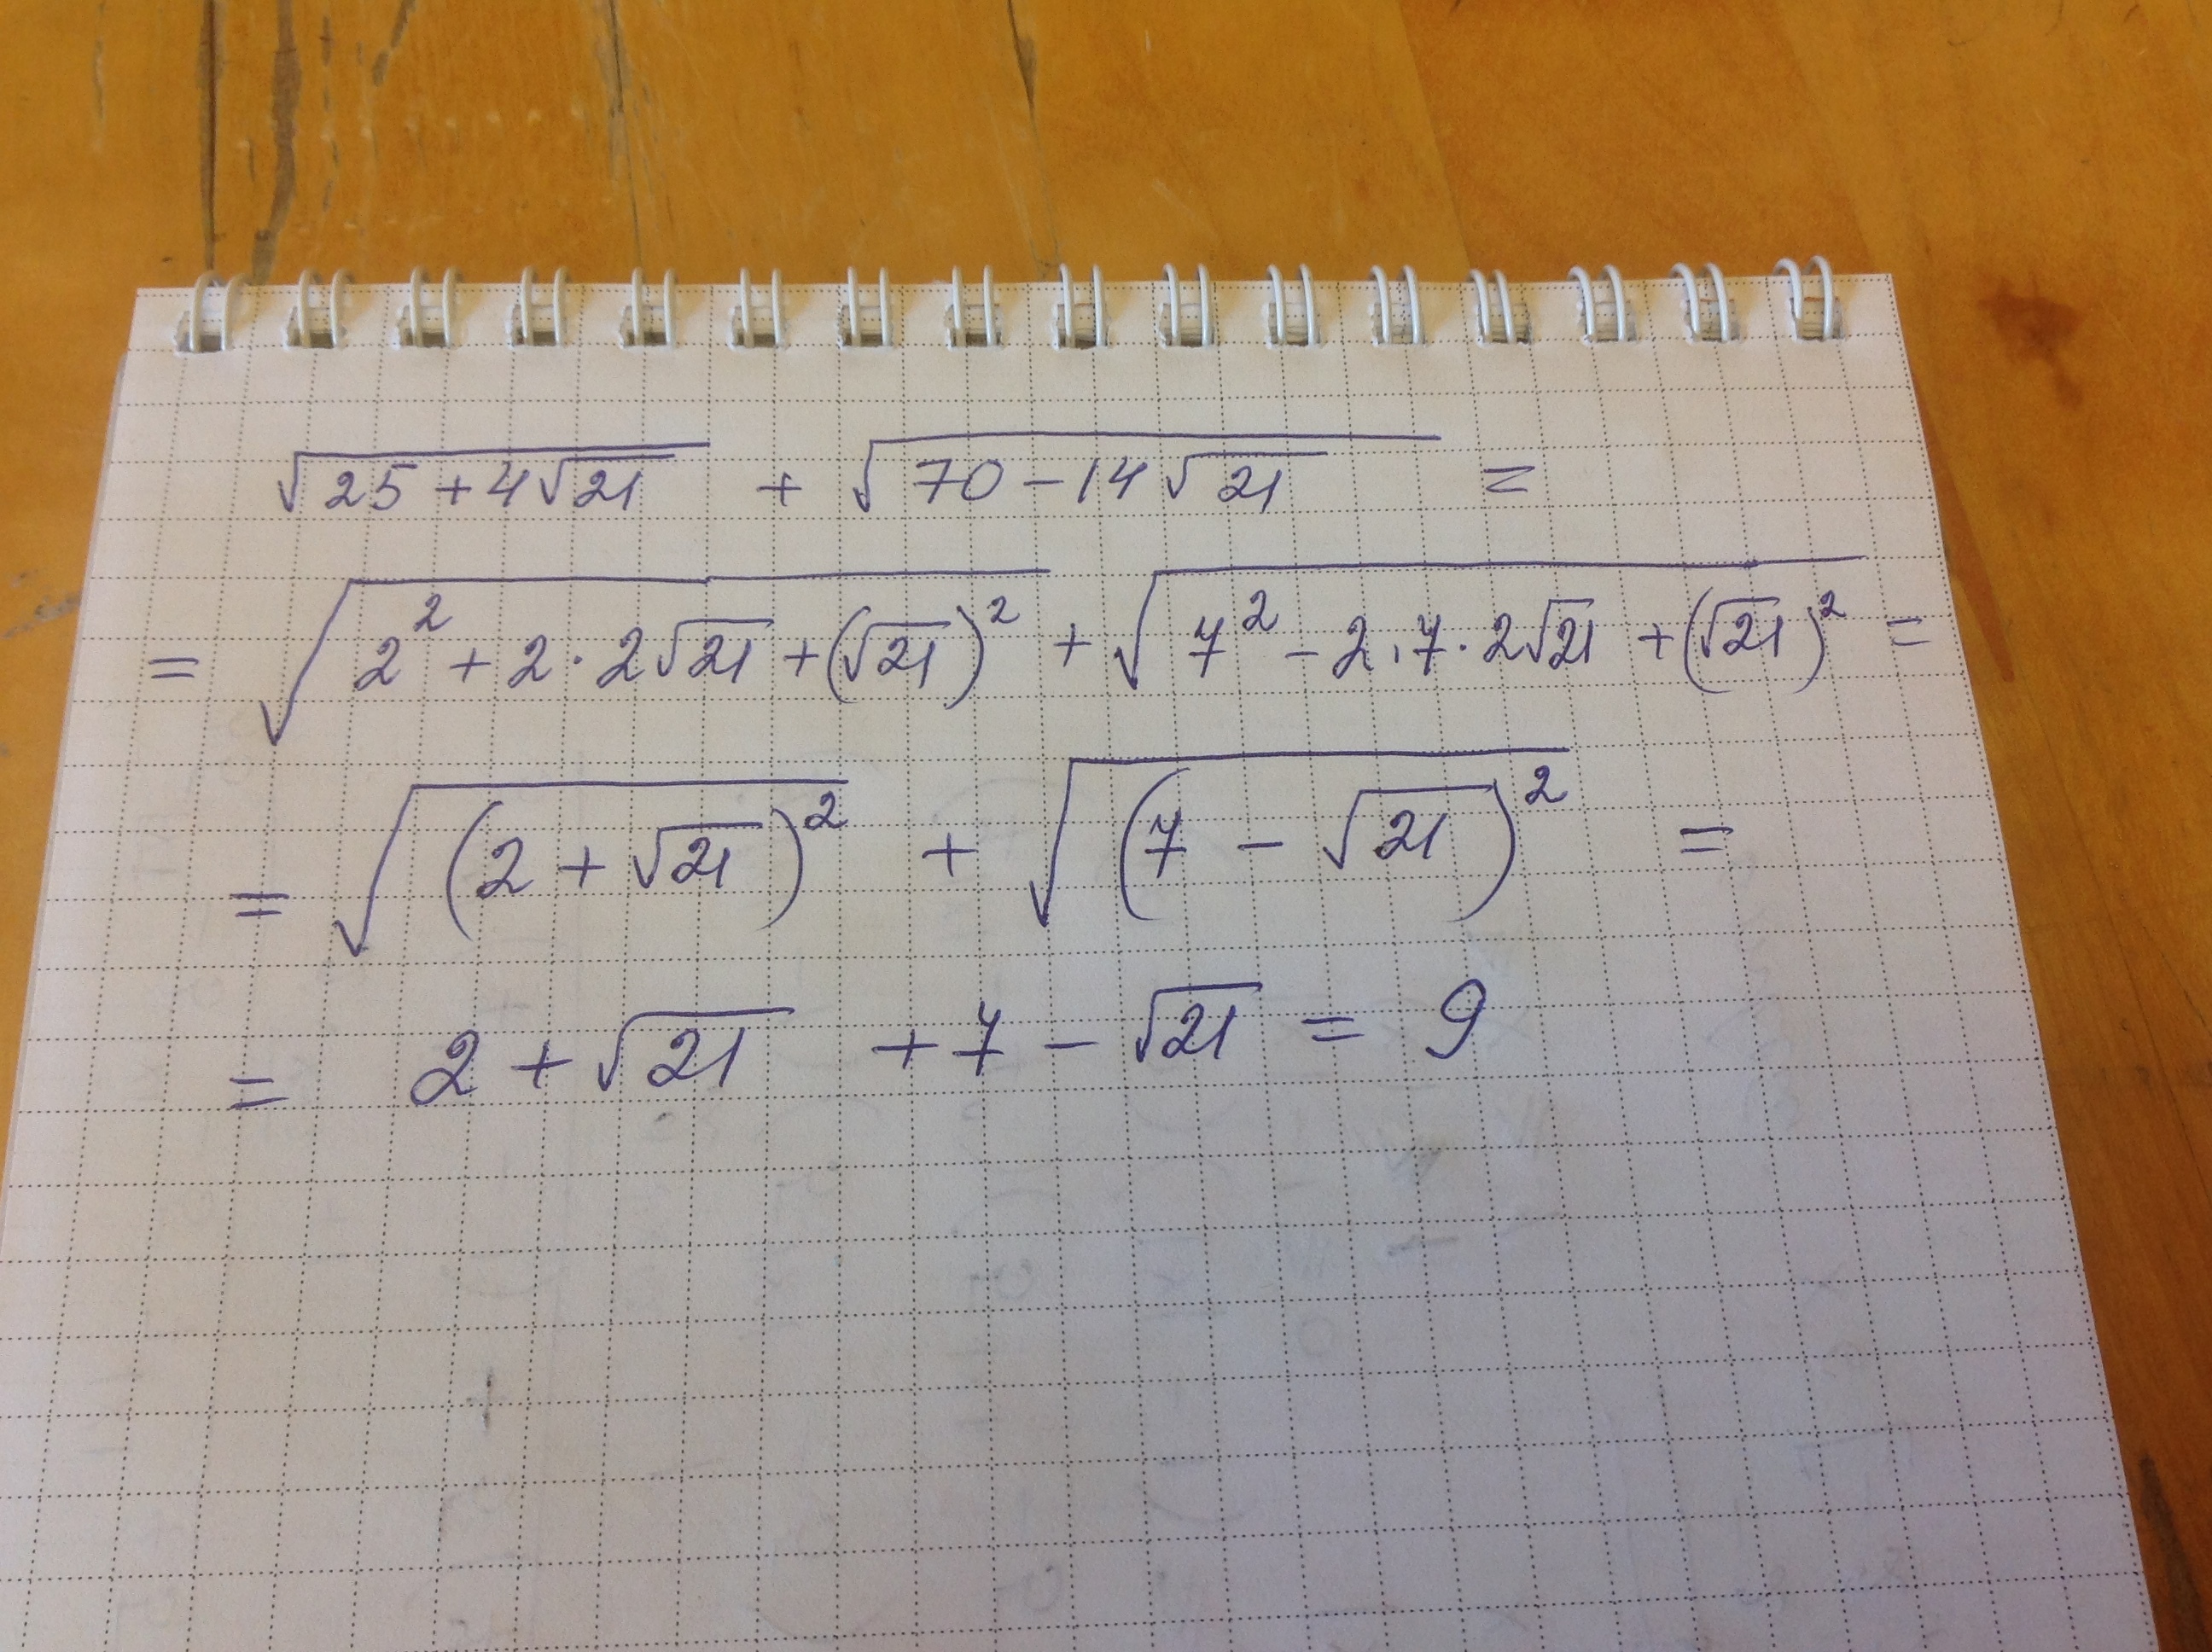 √(25 + 4√21) + √(70 − 14√21) =
= √(2² + 2 · 2√21 + (√21)²) + √(7² − 2 · 7 · 2√21 + (√21)²) =
= √((2 + √21)²) + √((7 − √21)²) =
= 2 + √21 + 7 − √21 = 9